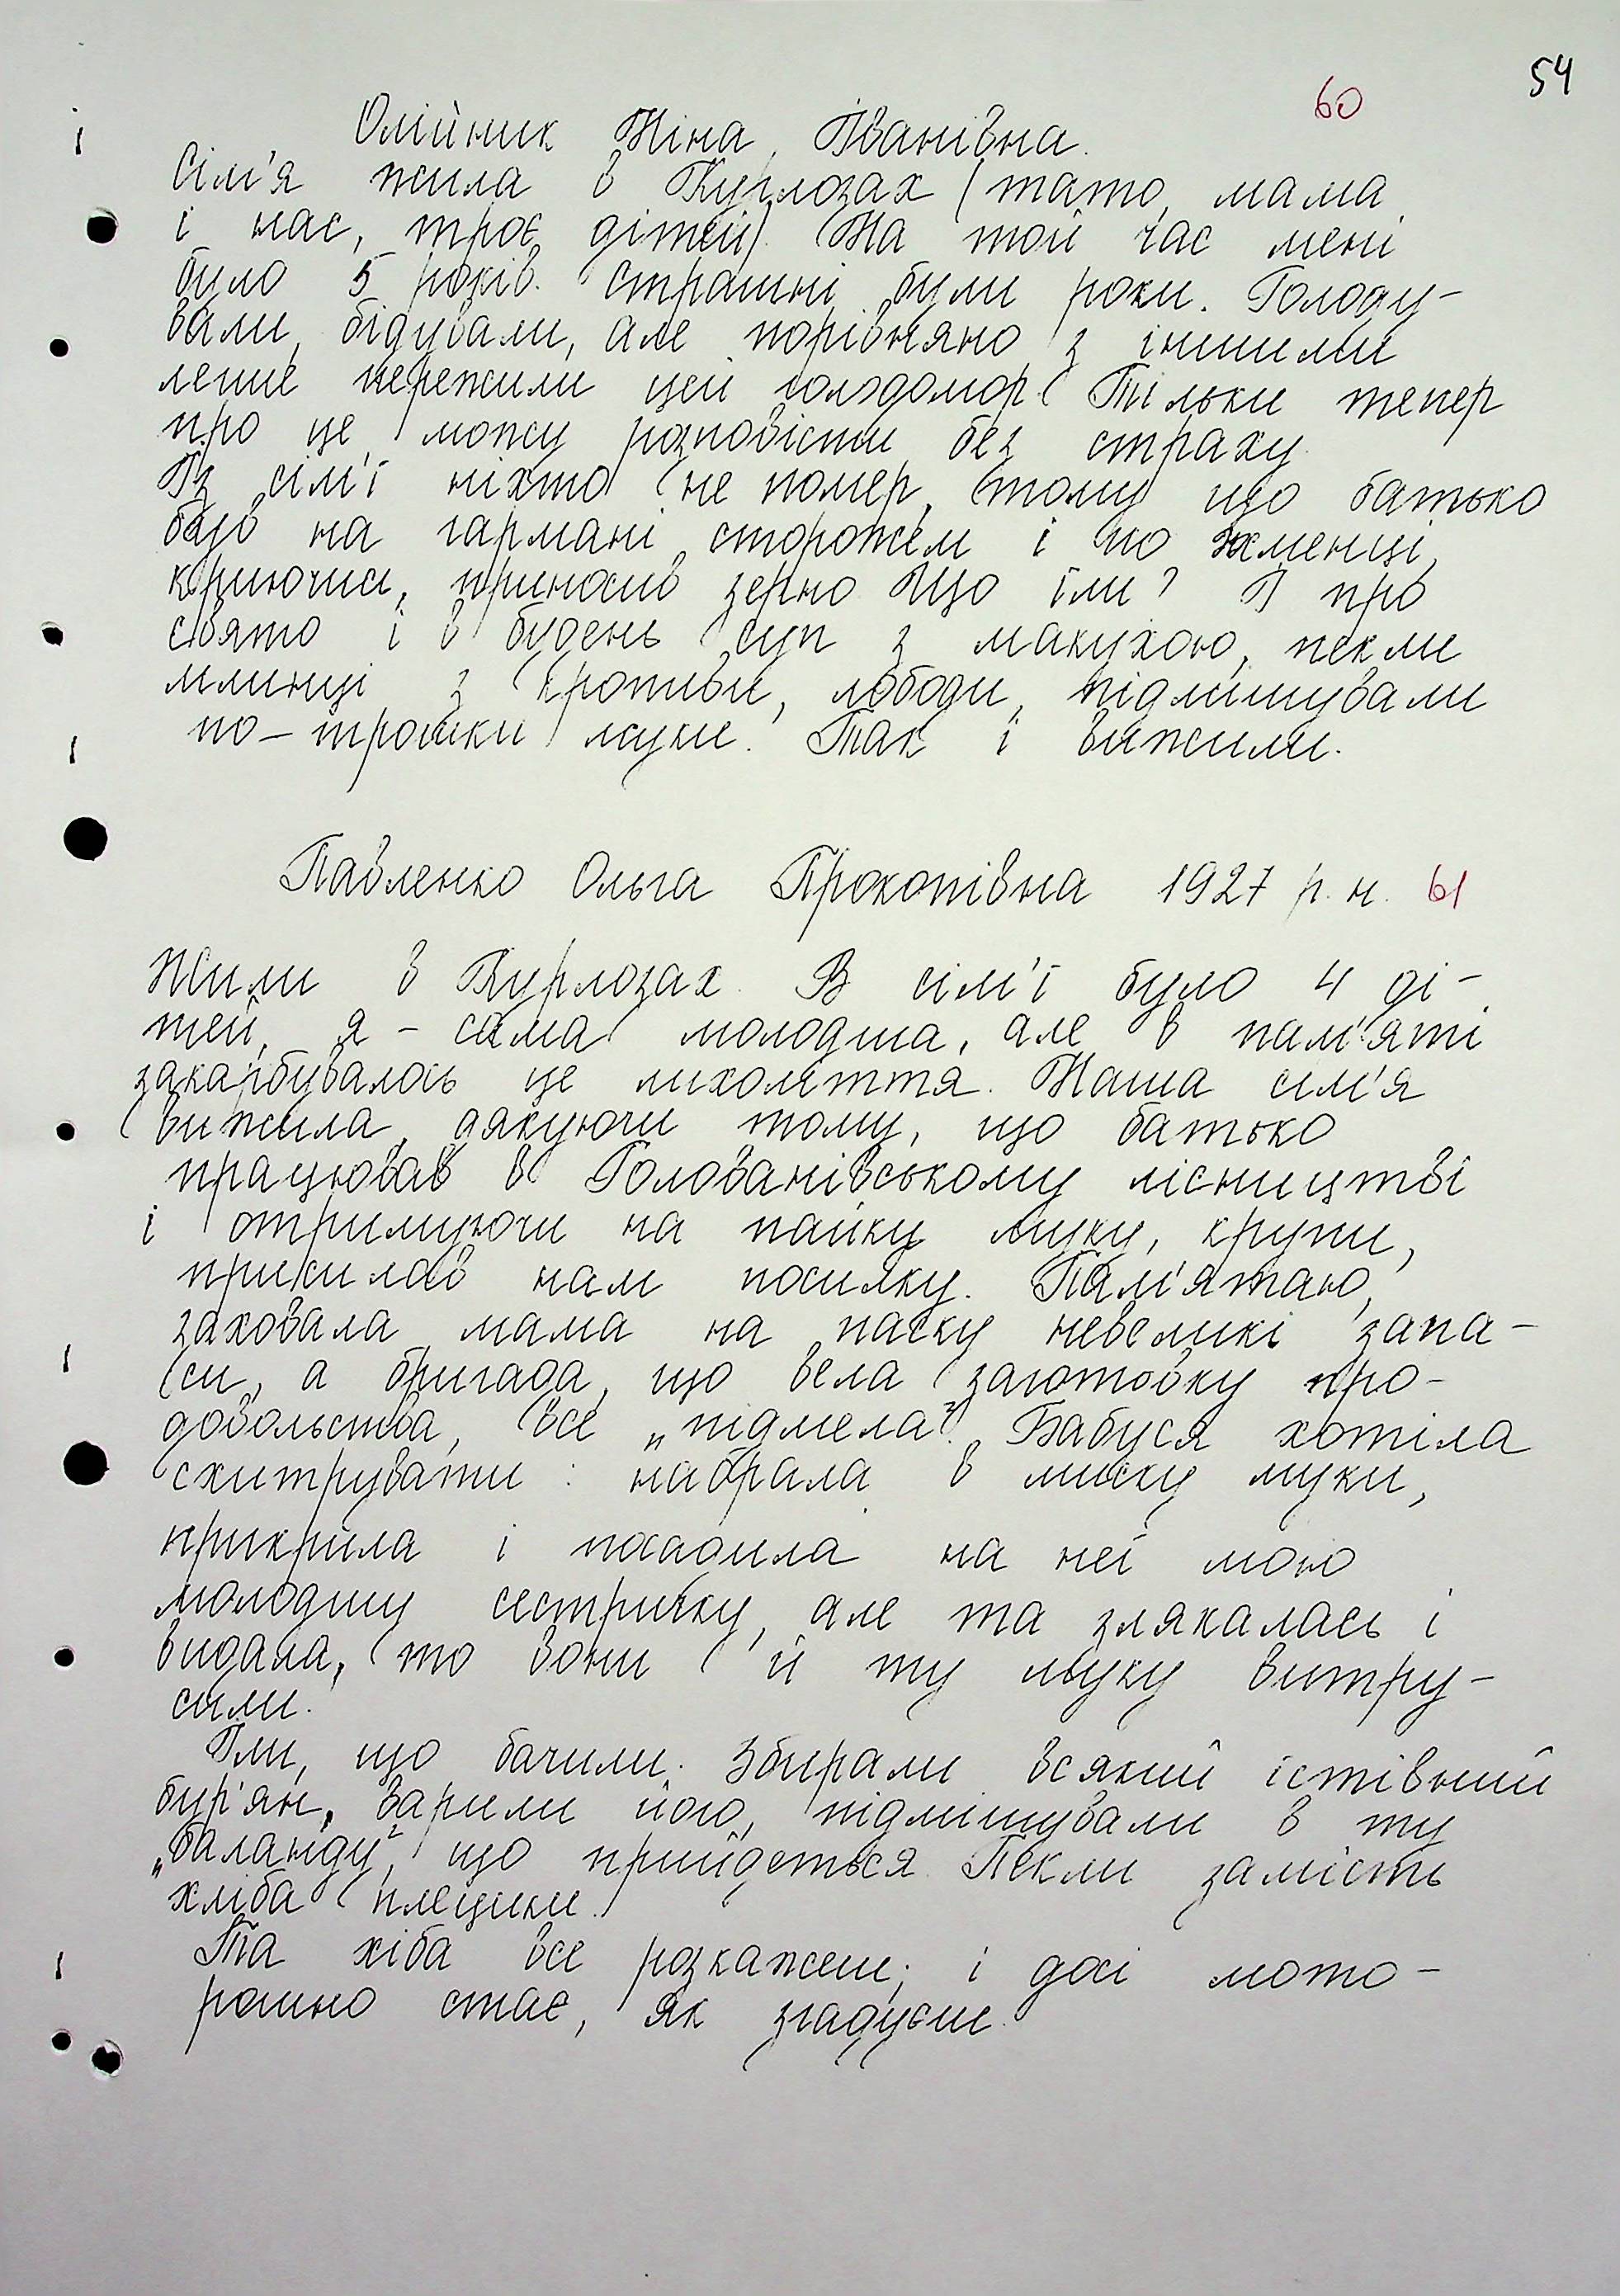 54
60
Олійник Ніна Іванівна.
Сім'я жила в Курлозах (тато, мама
і нас, троє дітей). На той час мені
було 5 років. Страшні були роки. Голоду-
вали, бідували, але порівняно з іншими
легше пережили цей голодомор. Тільки тепер
про це можу розповісти без страху.
Із сім'ї ніхто не помер, тому що батько
був на гармані сторожем і по жменці,
криючись, приносив зерно. Що їли? І про
свято і в будень суп з макухою, пекли
млинці з кропиви, лободи, підмішували
по-трошки муки. Так і вижили.
Павленко Ольга Прокопівна 1927 р.н. 61
Жили в Курлозах. В сім'ї було 4 ді-
тей, я - сама молодша, але в пам'яті
закарбувалось це лихоліття. Наша сім'я
вижила, дякуючи тому, що батько
працював в Голованівському лісництві
і отримуючи на пайку муку, крупи,
прислав нам посилку. Пам'ятаю,
заховала мама на паску невеликі запа-
си, а бригада, що вела заготовку про-
довольства, все „підмела". Бабуся хотіла
схитрувати: набрала в миску муки,
прикрила і посадила на неї мою
молодшу сестричку, але та злякалась і
видала, то вони й ту муку витру-
сили.
Їли, що бачили. Збирали всякий їстівний
бур'ян, варили його, підмішували в ту
„баланду", що прийдеться. Пекли замість
хліба плецики.
Та хіба все розкажеш; і досі мото-
рошно стає, як згадуєш.